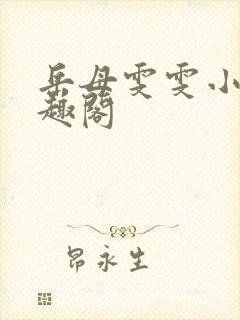 岳母雯雯小
趣阁
昂永生